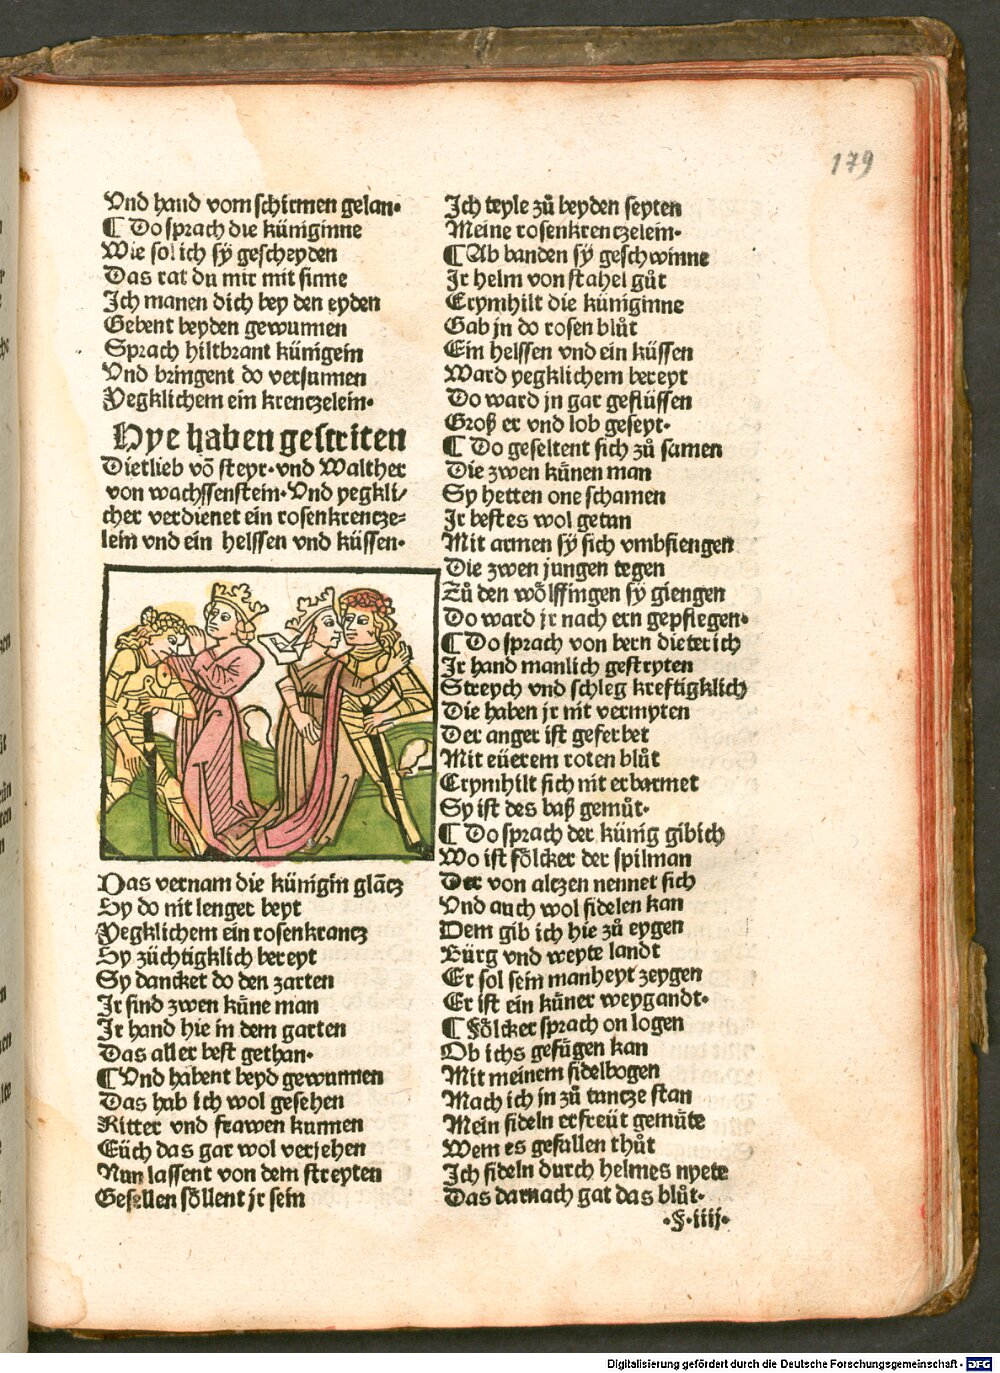 179
Vnd hand vom schirmen gelan·
¶ Do sprach die küniginne
Wie sol ich sÿ gescheyden
Das rat du mir mit sinne
Ich manen dich bey den eyden
Gebent beyden gewunnen
Sprach hiltbrant künigein
Vnd bringent do versunnen
Yegklichem ein krenczelein·
Hye haben gestriten
Dietlieb võ steyr·vnd Walther
von wachssenstein·Vnd yegkli/
cher verdienet ein rosenkrencze=
lein vnd ein helssen vnd küssen·
Das vernam die künigin glãcz
Sy do nit lenger beyt
Yegklichem ein rosenkrancz
Sy züchtigklich bereyt
Sy dancket do den zarten
Ir sind zwen küne man
Ir hand hie in dem garten
Das aller best gethan·
¶ Vnd habent beyd gewunnen
Das hab ich wol gesehen
Ritter vnd frawen kunnen
Eüch das gar wol veriehen
Nun lassent von dem streyten
Gesellen söllent jr sein
Ich teyle zů beyden seyten
Meine rosenkrenczelein·
¶ Ab banden sÿ geschwinne
Ir helm von stahel gůt
Crymhilt die küniginne
Gab jn do rosen blůt
Ein helssen vnd ein küssen
Ward yegklichem bereyt
Do ward jn gar geflüssen
Groß er vnd lob geseyt·
¶ Do geseltent sich zů samen
Die zwen künen man
Sy hetten one schamen
Ir bestes wol getan
Mit armen sÿ sich vmbfiengen
Die zwen jungen tegen
Zů den wölffingen sÿ giengen
Do ward jr nach ern gepflegen·
¶ Do sprach von bern dieterich
Ir hand manlich gestryten
Streych vnd schleg kreftigklich
Die haben jr nit vermyten
Der anger ist geferbet
Mit eüerem roten blůt
Crymhilt sich nit erbarmet
Sy ist des baß gemůt·
¶ Do sprach der künig gibich
Wo ist fölcker der spilman
Der von alczen nennet sich
Vnd auch wol fidelen kan
Dem gib ich hie zů eygen
Bürg vnd weyte landt
Er sol sein manheyt zeygen
Er ist ein küner weygandt·
¶ Fölcker sprach on logen
Ob ichs gefügen kan
Mit meinem fidelbogen
Mach ich jn zů tancze stan
Mein fideln erfreüt gemůte
Wem es gefallen thůt
Ich fideln durch helmes nyete
Das darnach gat das blůt·
·F·iiij·
Digitalisierung gefördert durch die Deutsche Forschungsgemeinschaft - DFG